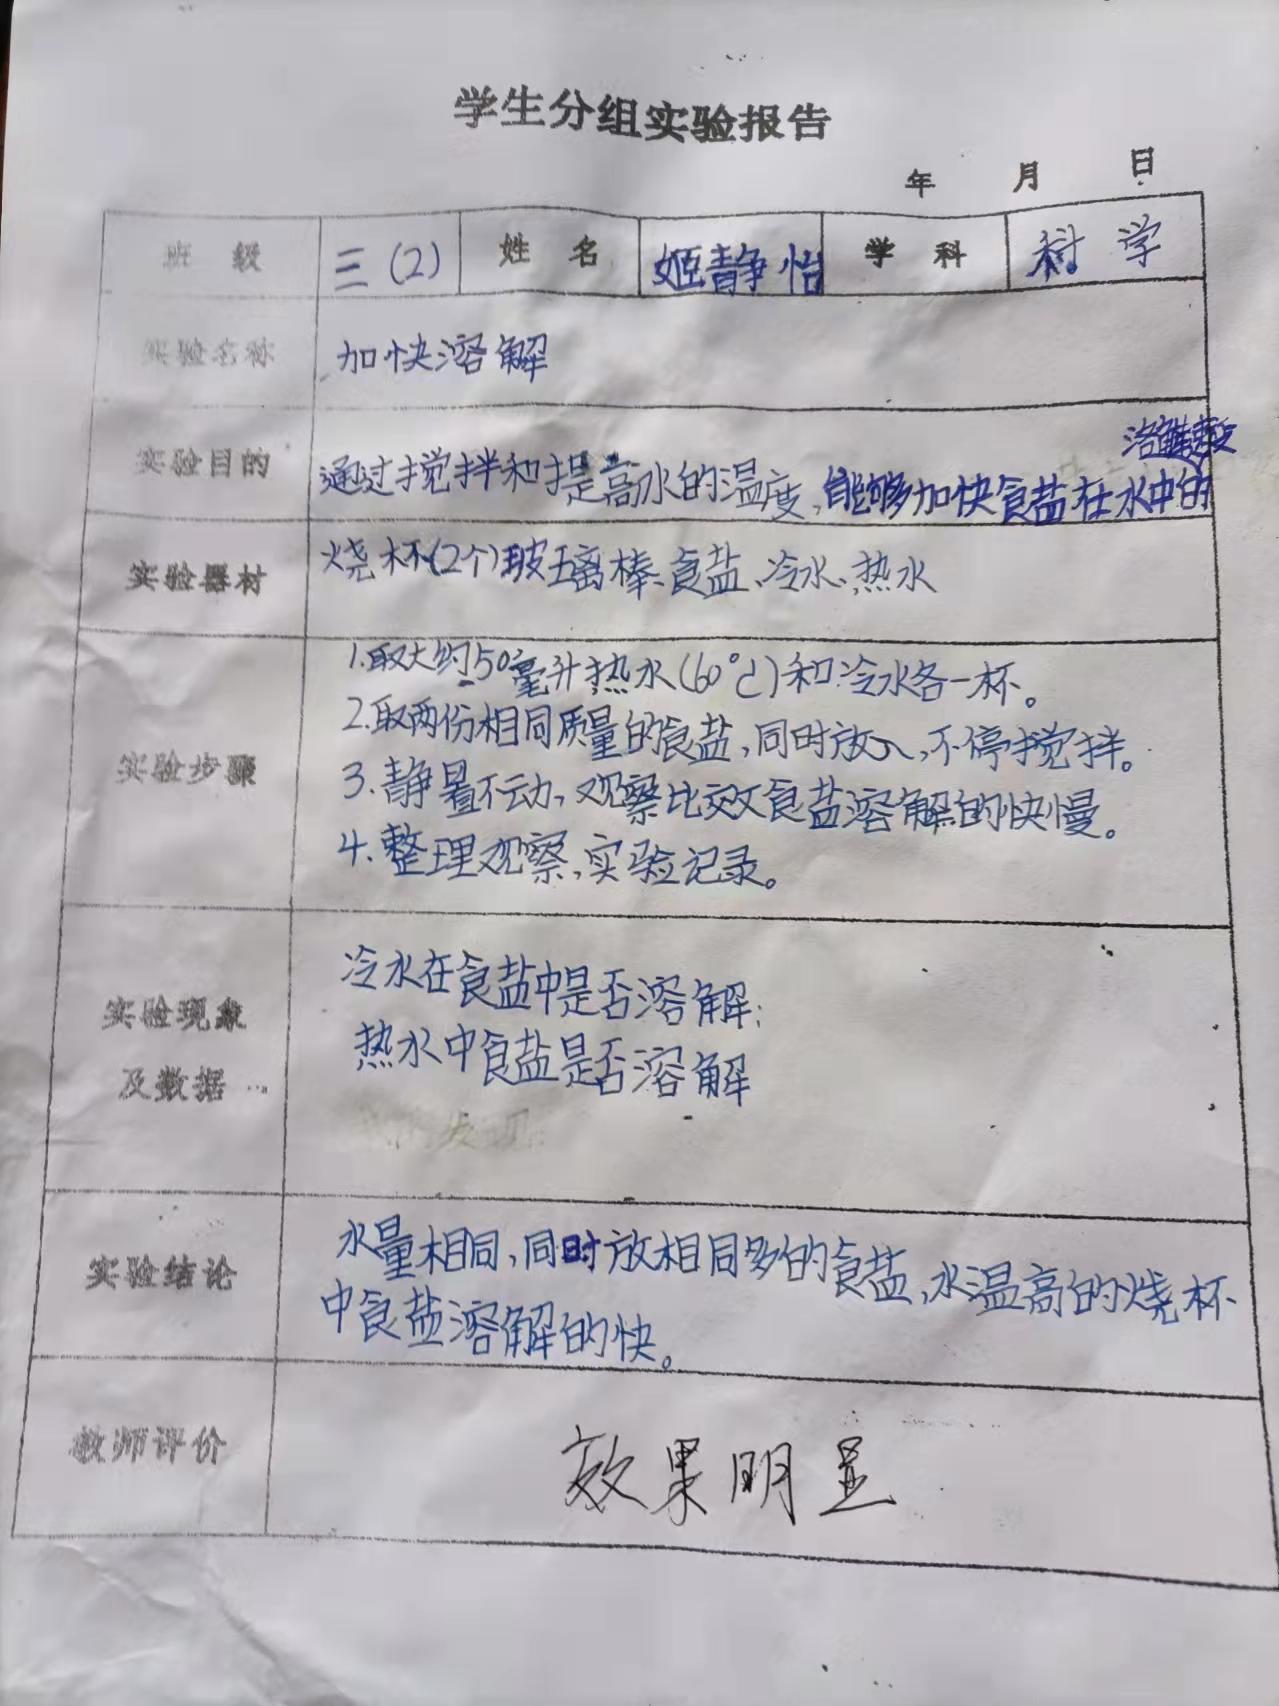 学生分组实验报告
年 月 日
班级 三(2) 姓名 姬静怡 学科 科学
实验名称 加快溶解
实验目的 通过搅拌和提高水的温度,能够加快食盐在水中的
溶解速度
实验器材 烧杯(2个)玻璃棒、食盐、冷水、热水
实验步骤
1.取大约50毫升热水(60℃)和冷水各一杯。
2.取两份相同质量的食盐,同时放入,不停搅拌。
3.静置不动,观察比较食盐溶解的快慢。
4.整理观察,实验记录。
实验现象
及数据
冷水在食盐中是否溶解;
热水中食盐是否溶解
实验结论
水量相同,同时放相同多的食盐,水温高的烧杯
中食盐溶解的快。
教师评价 效果明显